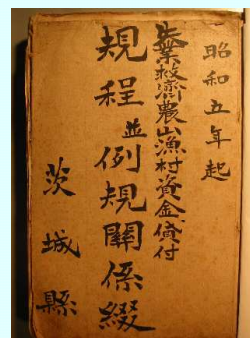 昭和五年起
失業救濟農山漁村資金貸付
規程並例規關係綴
茨城縣